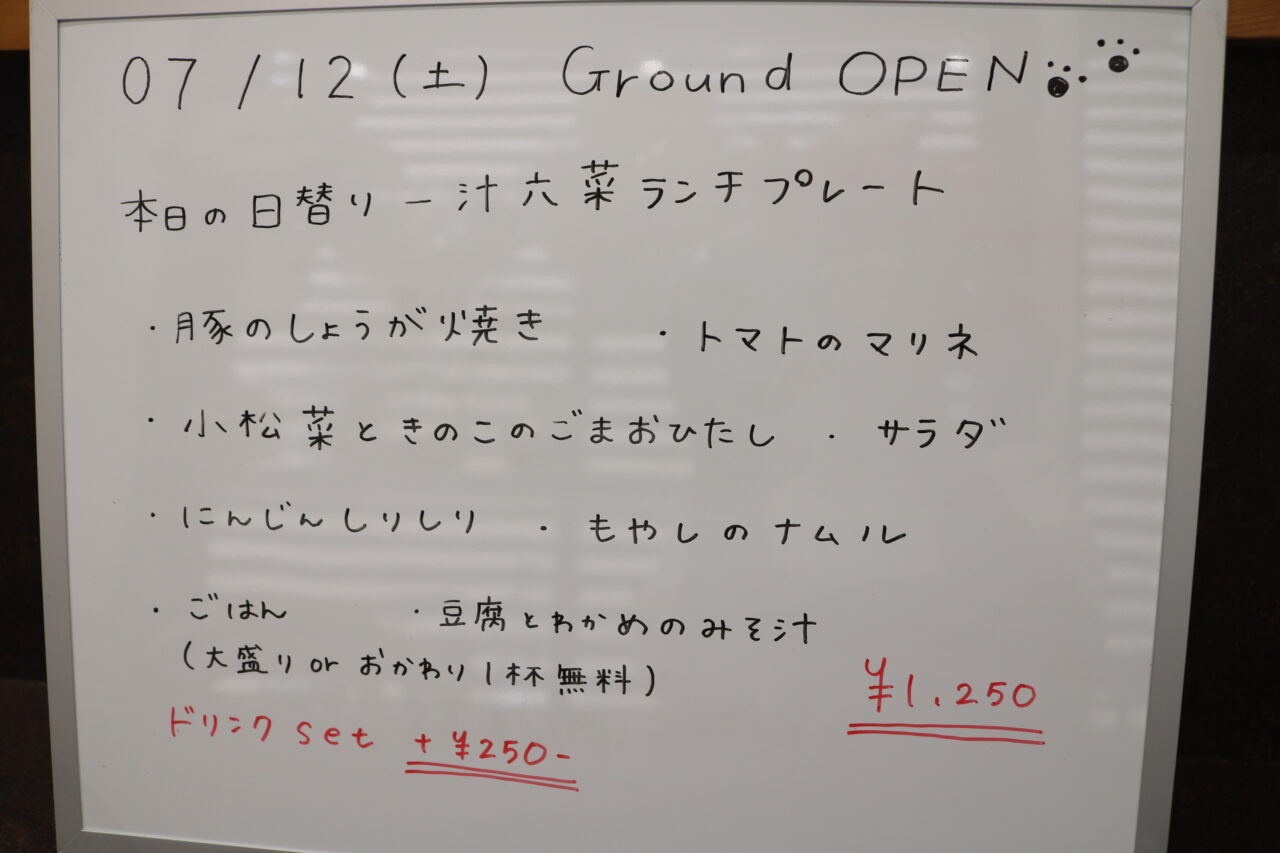 07/12(土) Ground OPEN
本日の日替り一汁六菜ランチプレート
・豚のしょうが焼き ・トマトのマリネ
・小松菜ときのこのごまおひたし ・サラダ
・にんじんしりしり ・もやしのナムル
・ごはん ・豆腐とわかめのみそ汁
(大盛り or おかわり1杯無料)
¥1,250
ドリンク set +¥250-